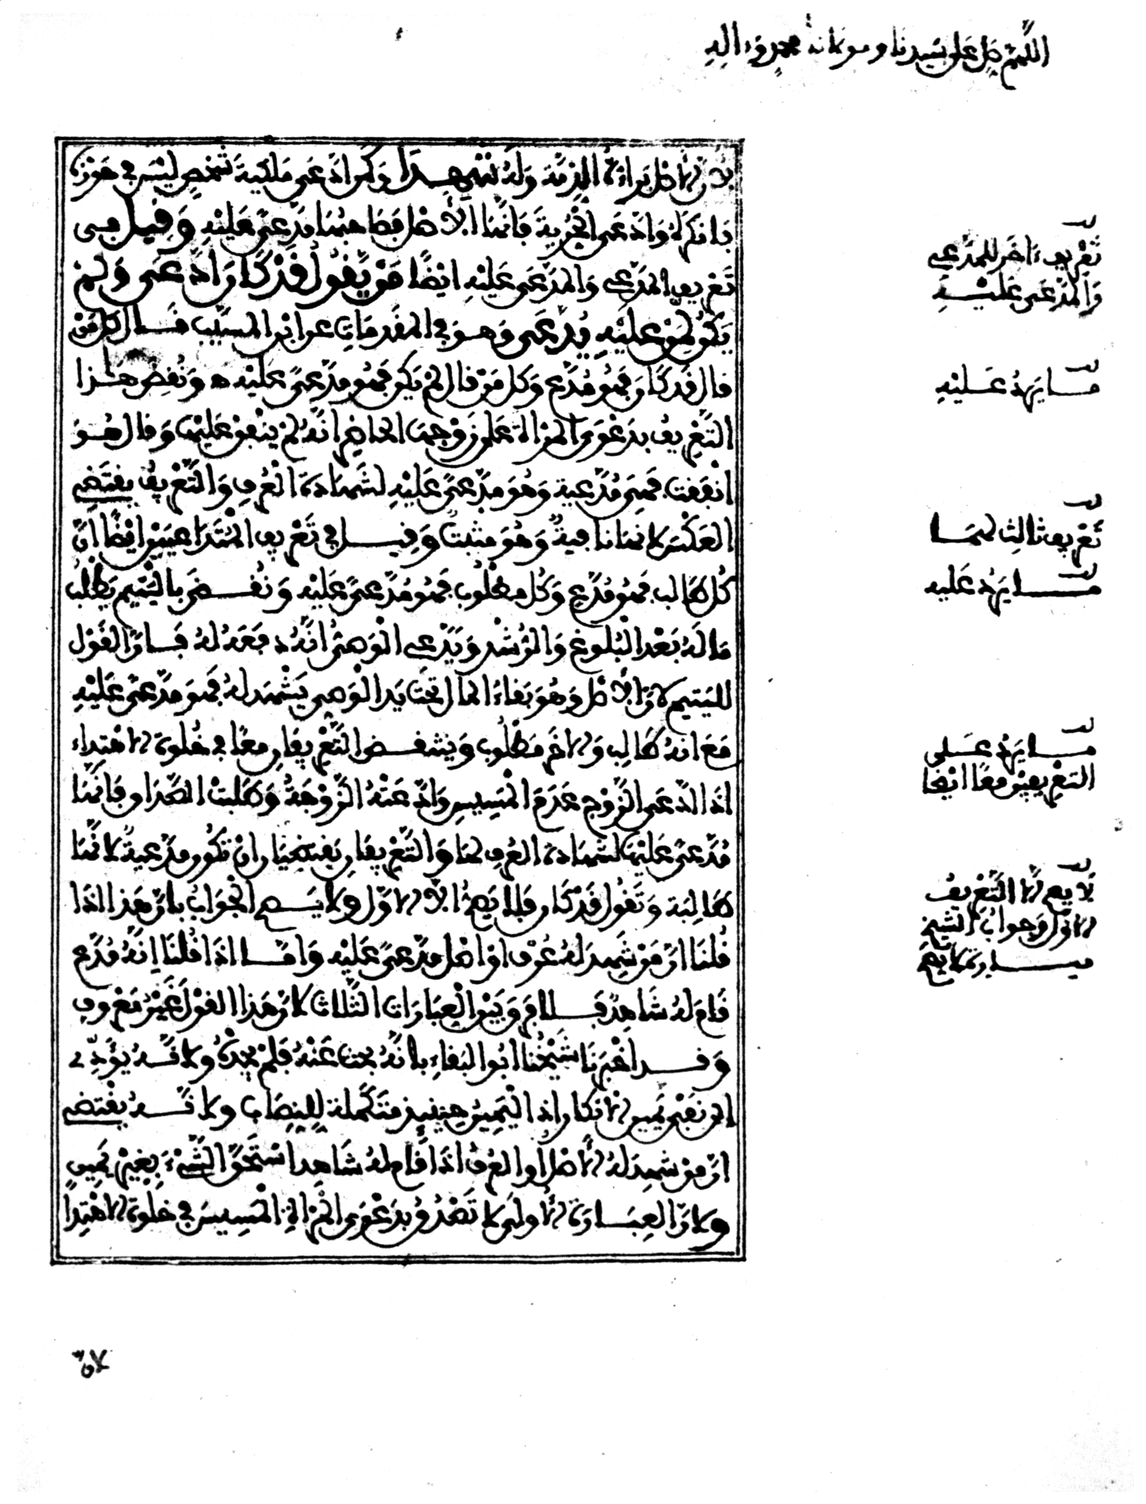 اللهم صل على سيدنا ومولانا محمد وءاله
لان الاصل براءة الذمة وله تشهد ا وكمن ادعى ملكية شخص ليس في حوزه
فانكره وادعى الحرية فانها الاصل فصاحبها مدعى عليه وقيل في
تعريف المدعي والمدعى عليه ايضا من يقول قد كان ادعى ولم
يكن لمن عليه يدعى وهو في المقدمات عن ابن المسيب قال كل من
قال قد كان فهو مدع وكل من قال لم يكن فهو مدعى عليه ه ونقض هذا
التعريف بدعوى المرأة على زوجها الحاضر انه لم ينفق عليها وقال هو
انفقت فهي مدعية وهو مدعى عليه لشهادة العرف والتعريف يقتضي
العكس لانها نافية وهو مثبت وقيل في تعريف المتداعيين ايضا ان
كل طالب فهو مدع وكل مطلوب فهو مدعى عليه ونقض باليتيم يطلب
ماله بعد البلوغ والرشد ويدعي الوصي انه دفعه له فان القول
لليتيم لان الاصل وهو بقاء المال تحت يد الوصي يشهد له فهو مدعى عليه
مع انه طالب والاخر مطلوب وينتقض التعريفان معا في خلوة الاهتداء
اذا ادعى الزوج عدم المسيس وادعته الزوجة وطلبت الصداق فانها
مدعى عليها لشهادة العرف لها والتعريفان يقتضيان ان تكون مدعية لانها
طالبة وتقول قد كان فلا يصح الاول ولا يسع الجواب بان هذا اذا
قلنا ان من شهد له عرف او اصل مدعى عليه واما اذا قلنا انه مدع
قام له شاهد فلا فرق بين العبارات الثلاث لان هذا القول غير معروف
وقد اخبرنا شيخنا ابو البقاء بانه بحث عنه فلم يجده ولانه يؤدي
الى نفي يمين الانكار اذ اليمين حينئذ متكملة للنصاب ولانه يقتضي
ان من شهد له الاصل او العرف اذا قام له شاهد استحق الشيء بغير يمين
ولان العبارة الاولى لا تصدق بدعوى المرأة المسيس في خلوة الاهتدا
قف
تعريف ءاخر للمدعي
والمدعى عليه
قف
ما يرد عليه
قف
تعريف ثالث لهما
قف
ما يرد عليه
قف
ما يرد على
التعريفين معا ايضا
قف
لا يصح التعريف
الاول وجواب الشيخ
ميارة لا يصح